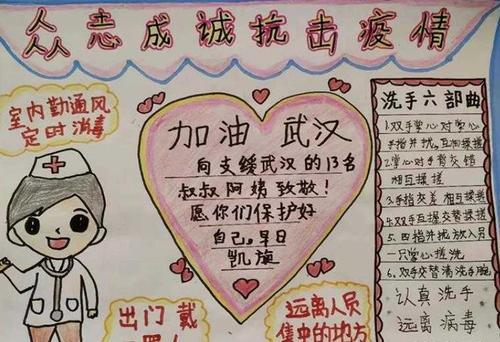 众志成诚抗击疫情
室内勤通风
定时消毒
加油 武汉
向支缓武汉的13名
叔叔阿姨致敬!
愿你们保护好
自己。早日
凯旋
洗手六部曲
1.双手掌心对掌心
手指并拢,互相揉搓
2.掌心对手背交错
相互揉搓
3.手指交差 相互揉搓
4.双手互握交替揉搓
5.四指并拢放入另
一只掌心搓洗
6.双手交替清洗手腕
认真洗手
远离病毒
出门戴
远离人员
集中的地方